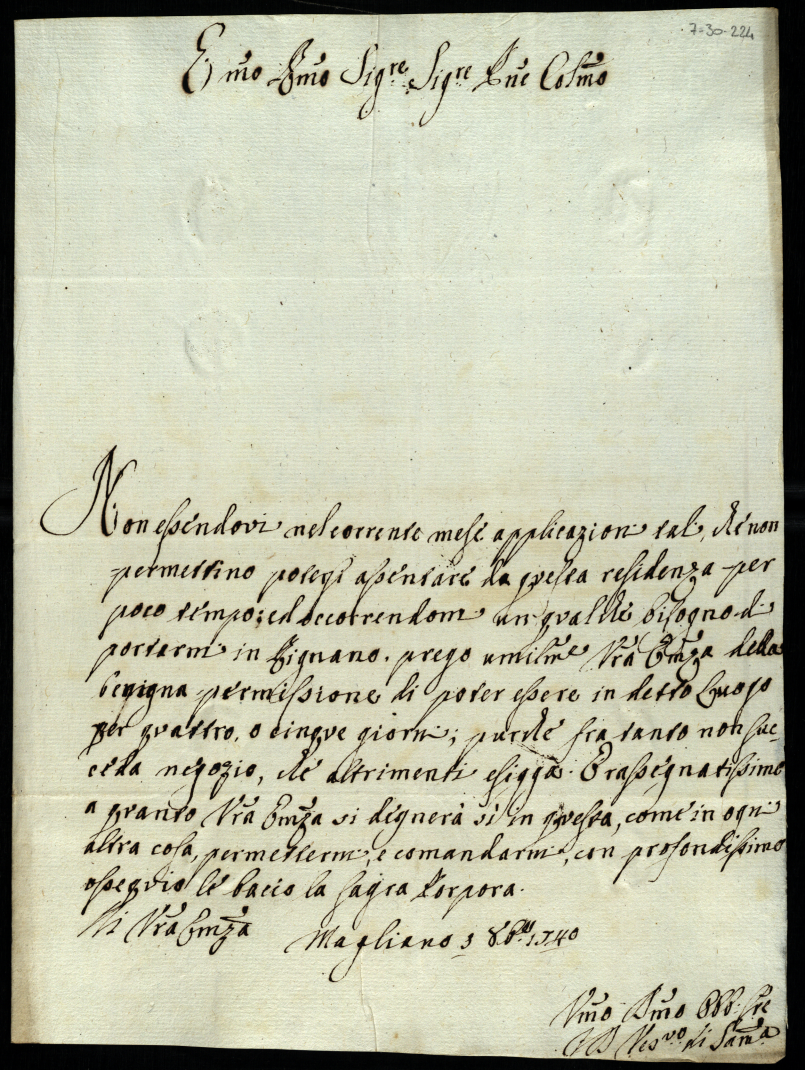 7-30-224
E)mo Rmo Sig.re Sig.re Pne Colmo
Non essendovi nel corrente mese applicazioni tali, che non
permettino potegl assentare da questa residenza per
poco tempo; ed occorrendomi un qualche bisogno di
portarmi in Bignano, prego umilme Vrã Emza della
benigna permissione di poter essere in detto Luogo
per quattro, o cinque giorni; purche fra tanto non suc-
ceda negozio, che altrimenti esigga. E rassegnatissimo
a quanto Vrã Emza si degnerà si in questa, come in ogni
altra cosa, permettermi, e comandarmi, con profondissimo
ossequio le bacio la sagra Porpora.
Di Vrã Emza Magliano 3 8bre 1740
Vmo Dmo Obb: Sre
Vesvo di Sabina